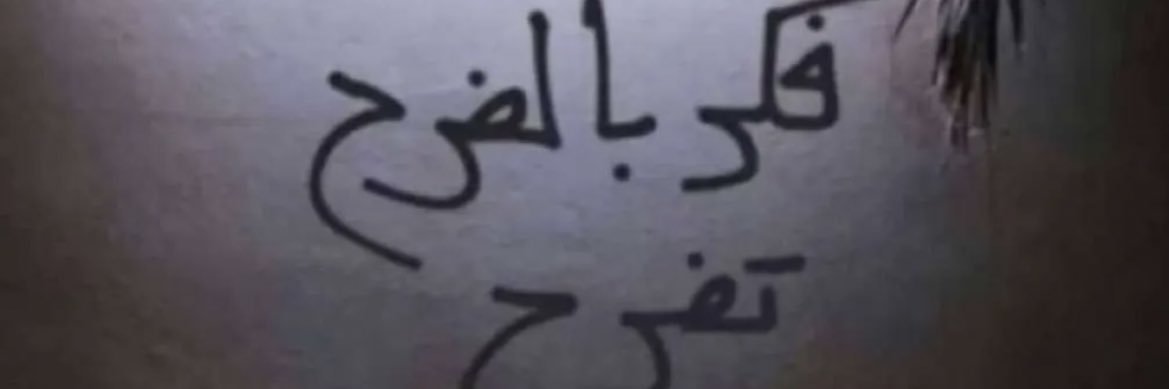 فكر بالفرح
تفرح